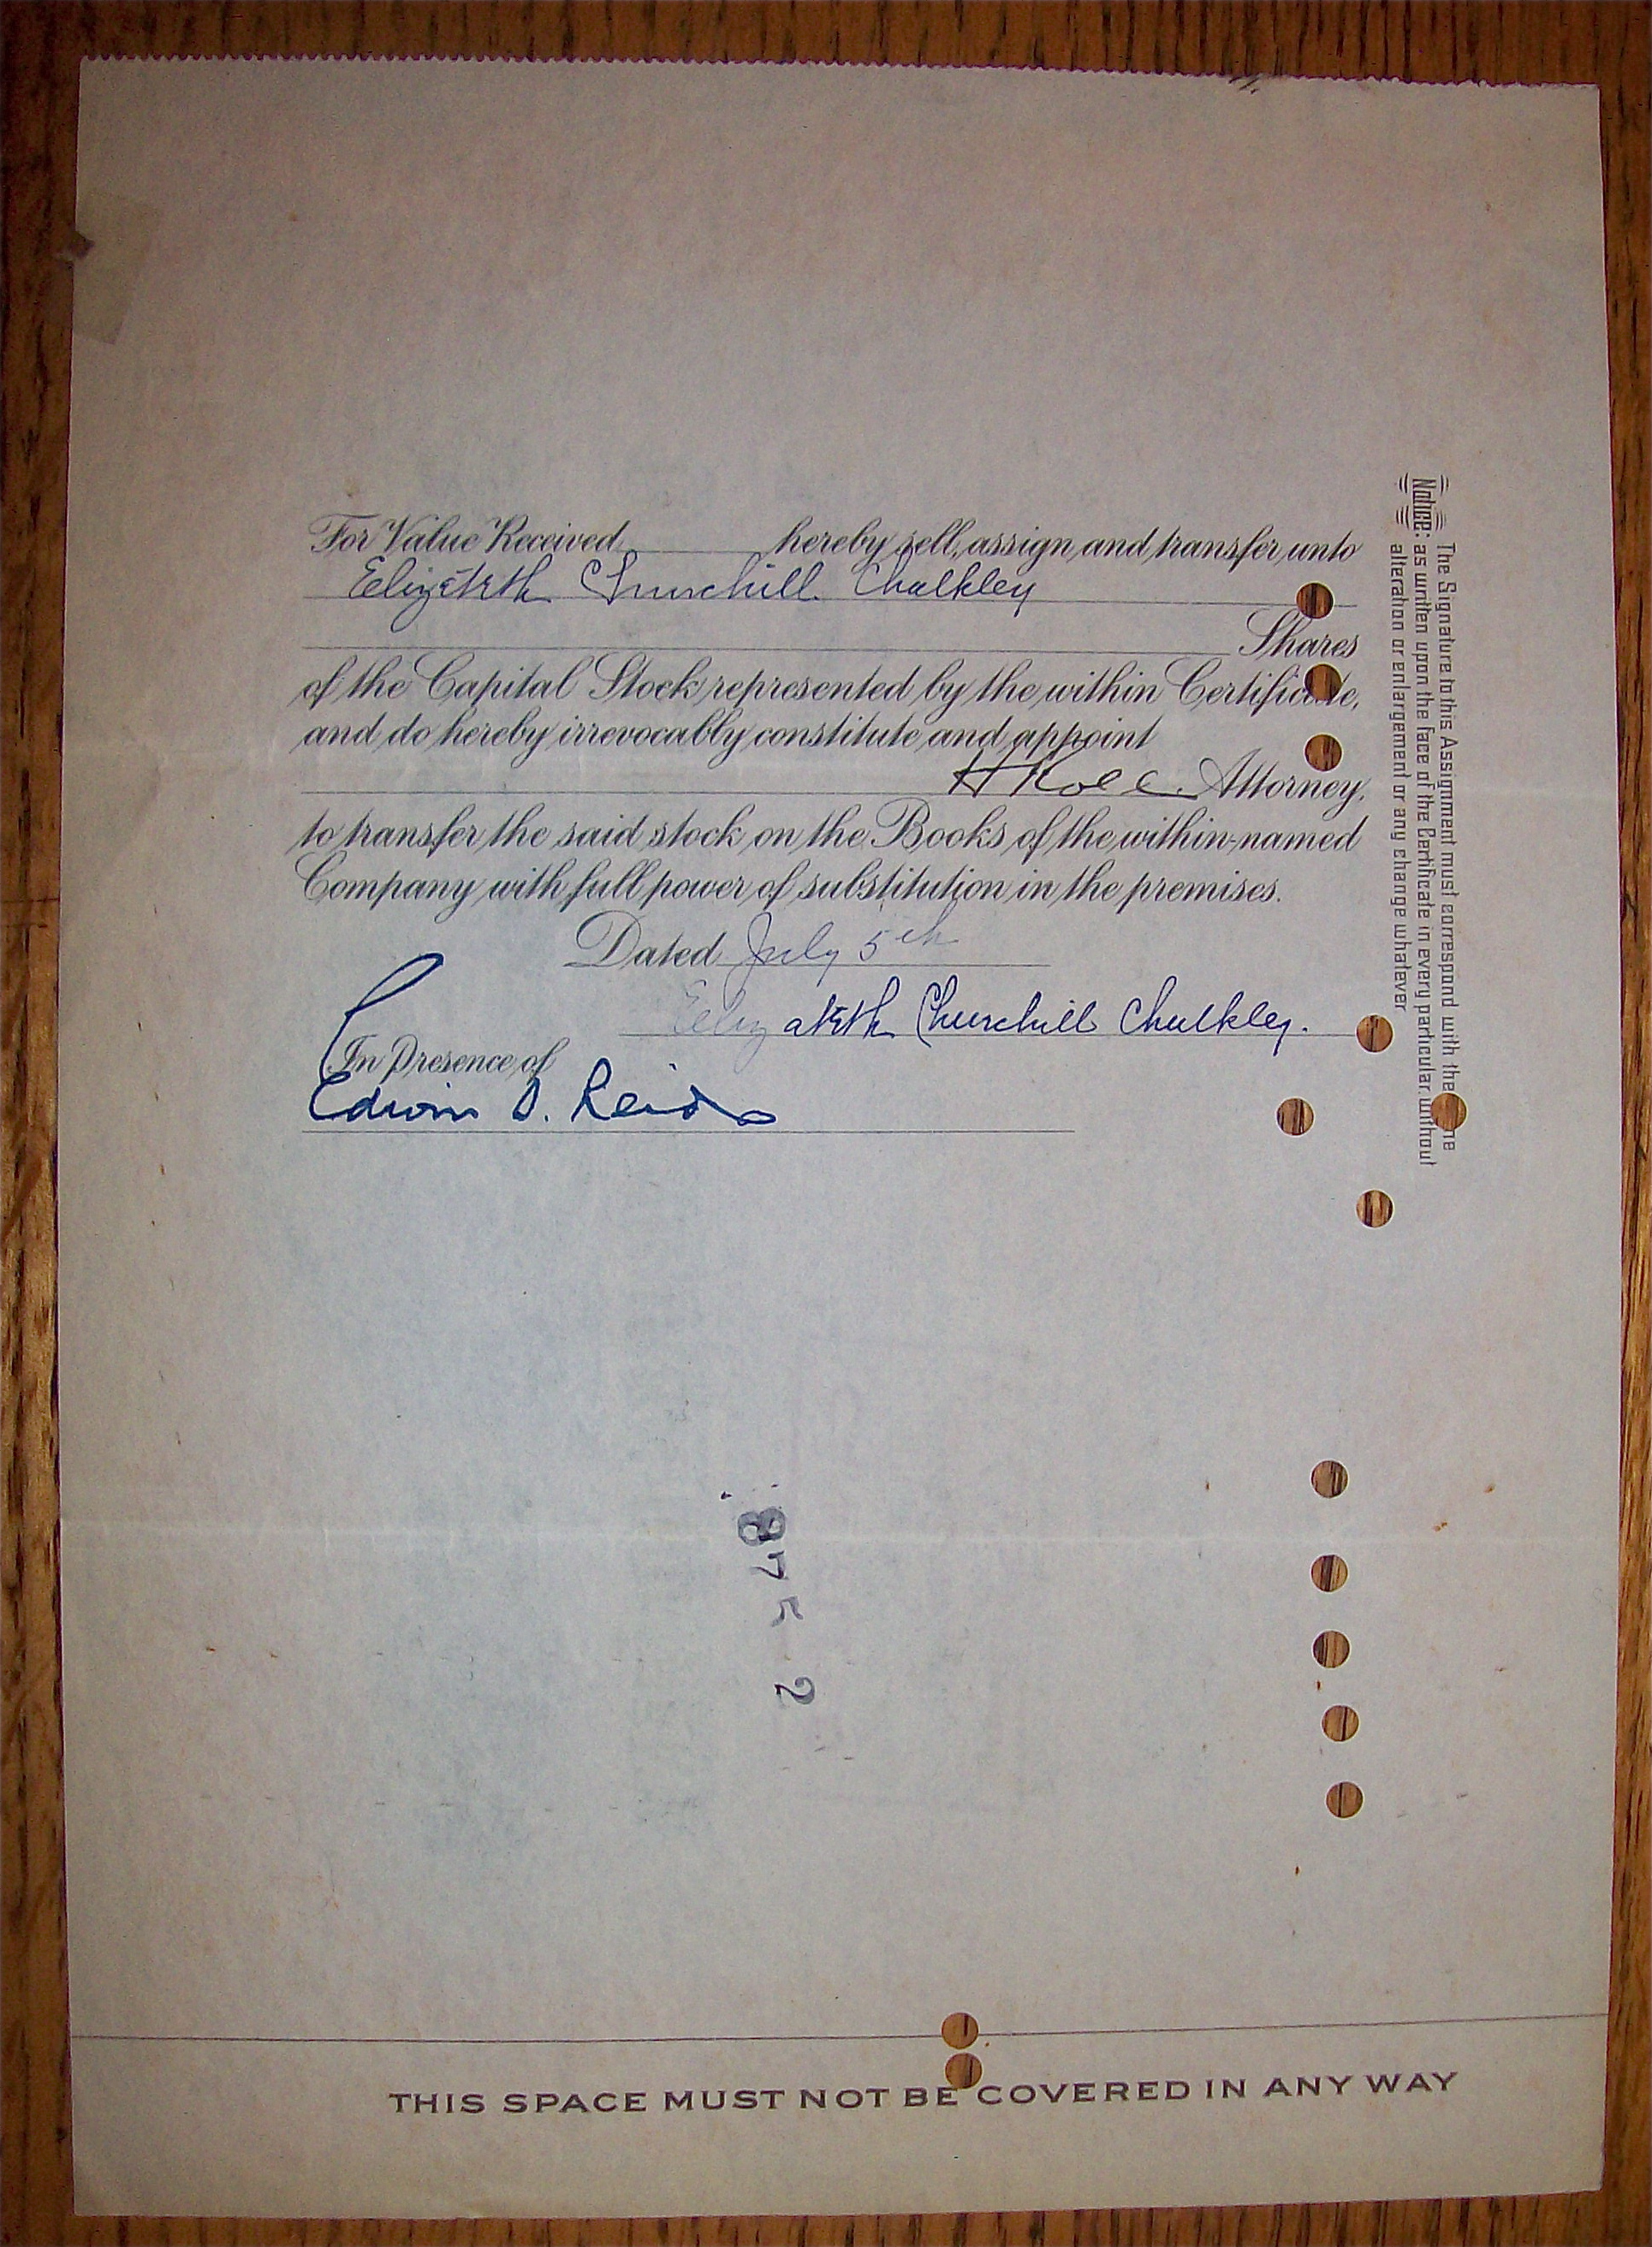 For Value Received hereby sell, assign and transfer unto
Elizabeth Churchill Chalkley
Shares
of the Capital Stock represented by the within Certificate,
and do hereby irrevocably constitute and appoint
Attorney,
to transfer the said stock on the Books of the within-named
Company with full power of substitution in the premises.
Dated July 5th
Elizabeth Churchill Chalkley.
In Presence of
Edwin D. Reid
Notice: The Signature to this Assignment must correspond with the
as written upon the face of the Certificate in every particular without
alteration or enlargement or any change whatever
875 2
THIS SPACE MUST NOT BE COVERED IN ANY WAY